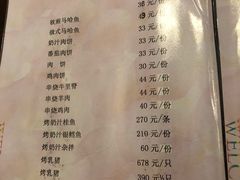 36元/份
软煎马哈鱼 39元/份
俄式马哈鱼 33元/份
奶汁肉饼 33元/份
番茄肉饼 33元/份
肉饼 30元/份
鸡肉饼 44元/份
串烧牛里脊 44元/份
串烧羊肉 44元/份
串烧鸡肉 40元/份
烤奶汁桂鱼 270元/条
烤奶汁银鳕鱼 210元/份
烤奶汁杂拌 60元/份
烤乳猪 678元/只
烤乳猪 390元/只
WELC